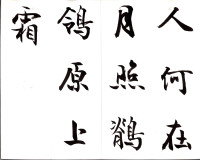 人何在
月照鶺
鴒原上
霜